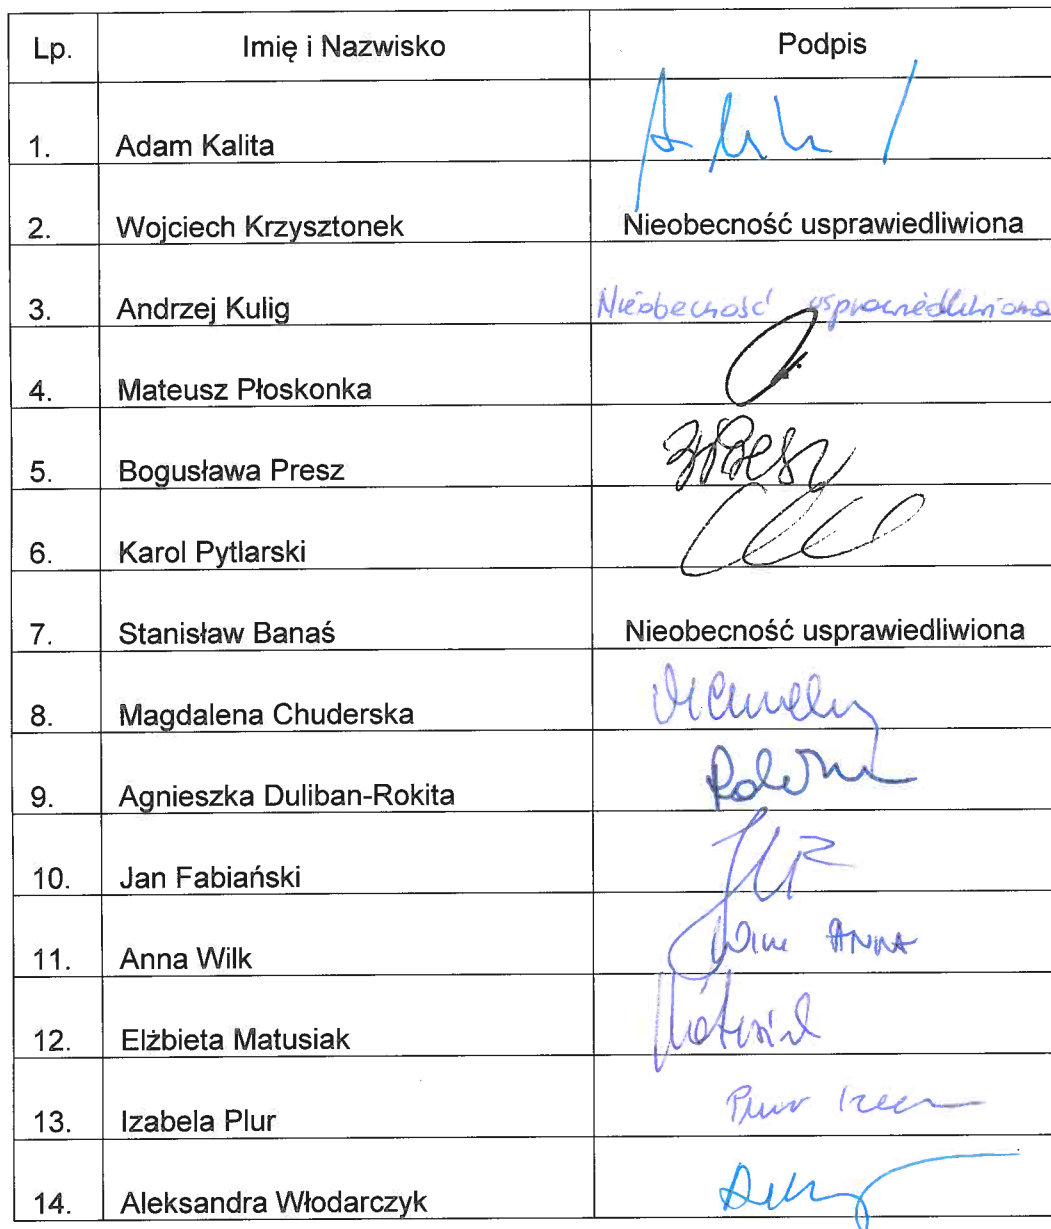 Lp. Imię i Nazwisko Podpis
1. Adam Kalita
2. Wojciech Krzysztonek Nieobecność usprawiedliwiona
3. Andrzej Kulig Nieobecność usprawiedliwiona
4. Mateusz Płoskonka
5. Bogusława Presz
6. Karol Pytlarski
7. Stanisław Banaś Nieobecność usprawiedliwiona
8. Magdalena Chuderska
9. Agnieszka Duliban-Rokita
10. Jan Fabiański
11. Anna Wilk Wilk ANNA
12. Elżbieta Matusiak
13. Izabela Plur
14. Aleksandra Włodarczyk